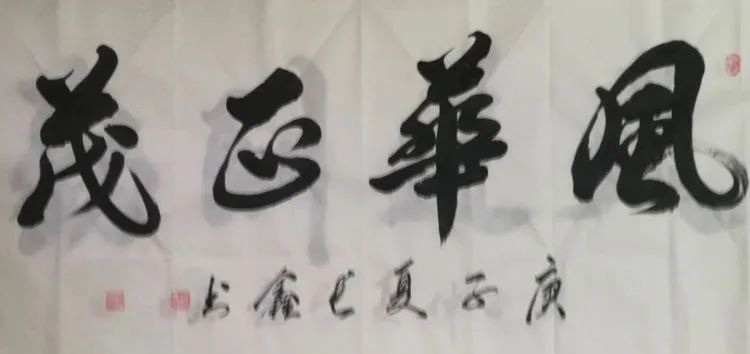 風華正茂
庚子夏 鑫书